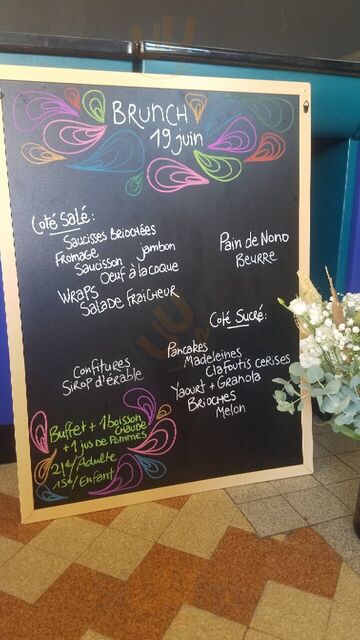 BRUNCH
19 juin
Coté Salé:
Saucisses Briochées
Fromage
Saucisson jambon
Oeuf à la coque
Wraps
Salade Fraicheur
Pain de Nono
Beurre
Coté Sucré:
Pancakes
Madeleines
Clafoutis cerises
Yaourt + Granola
Brioches
Melon
Confitures
Sirop d'érable
Buffet + 1 boisson
chaude
+ 1 jus de Pommes
21€/Adulte
15€/Enfant